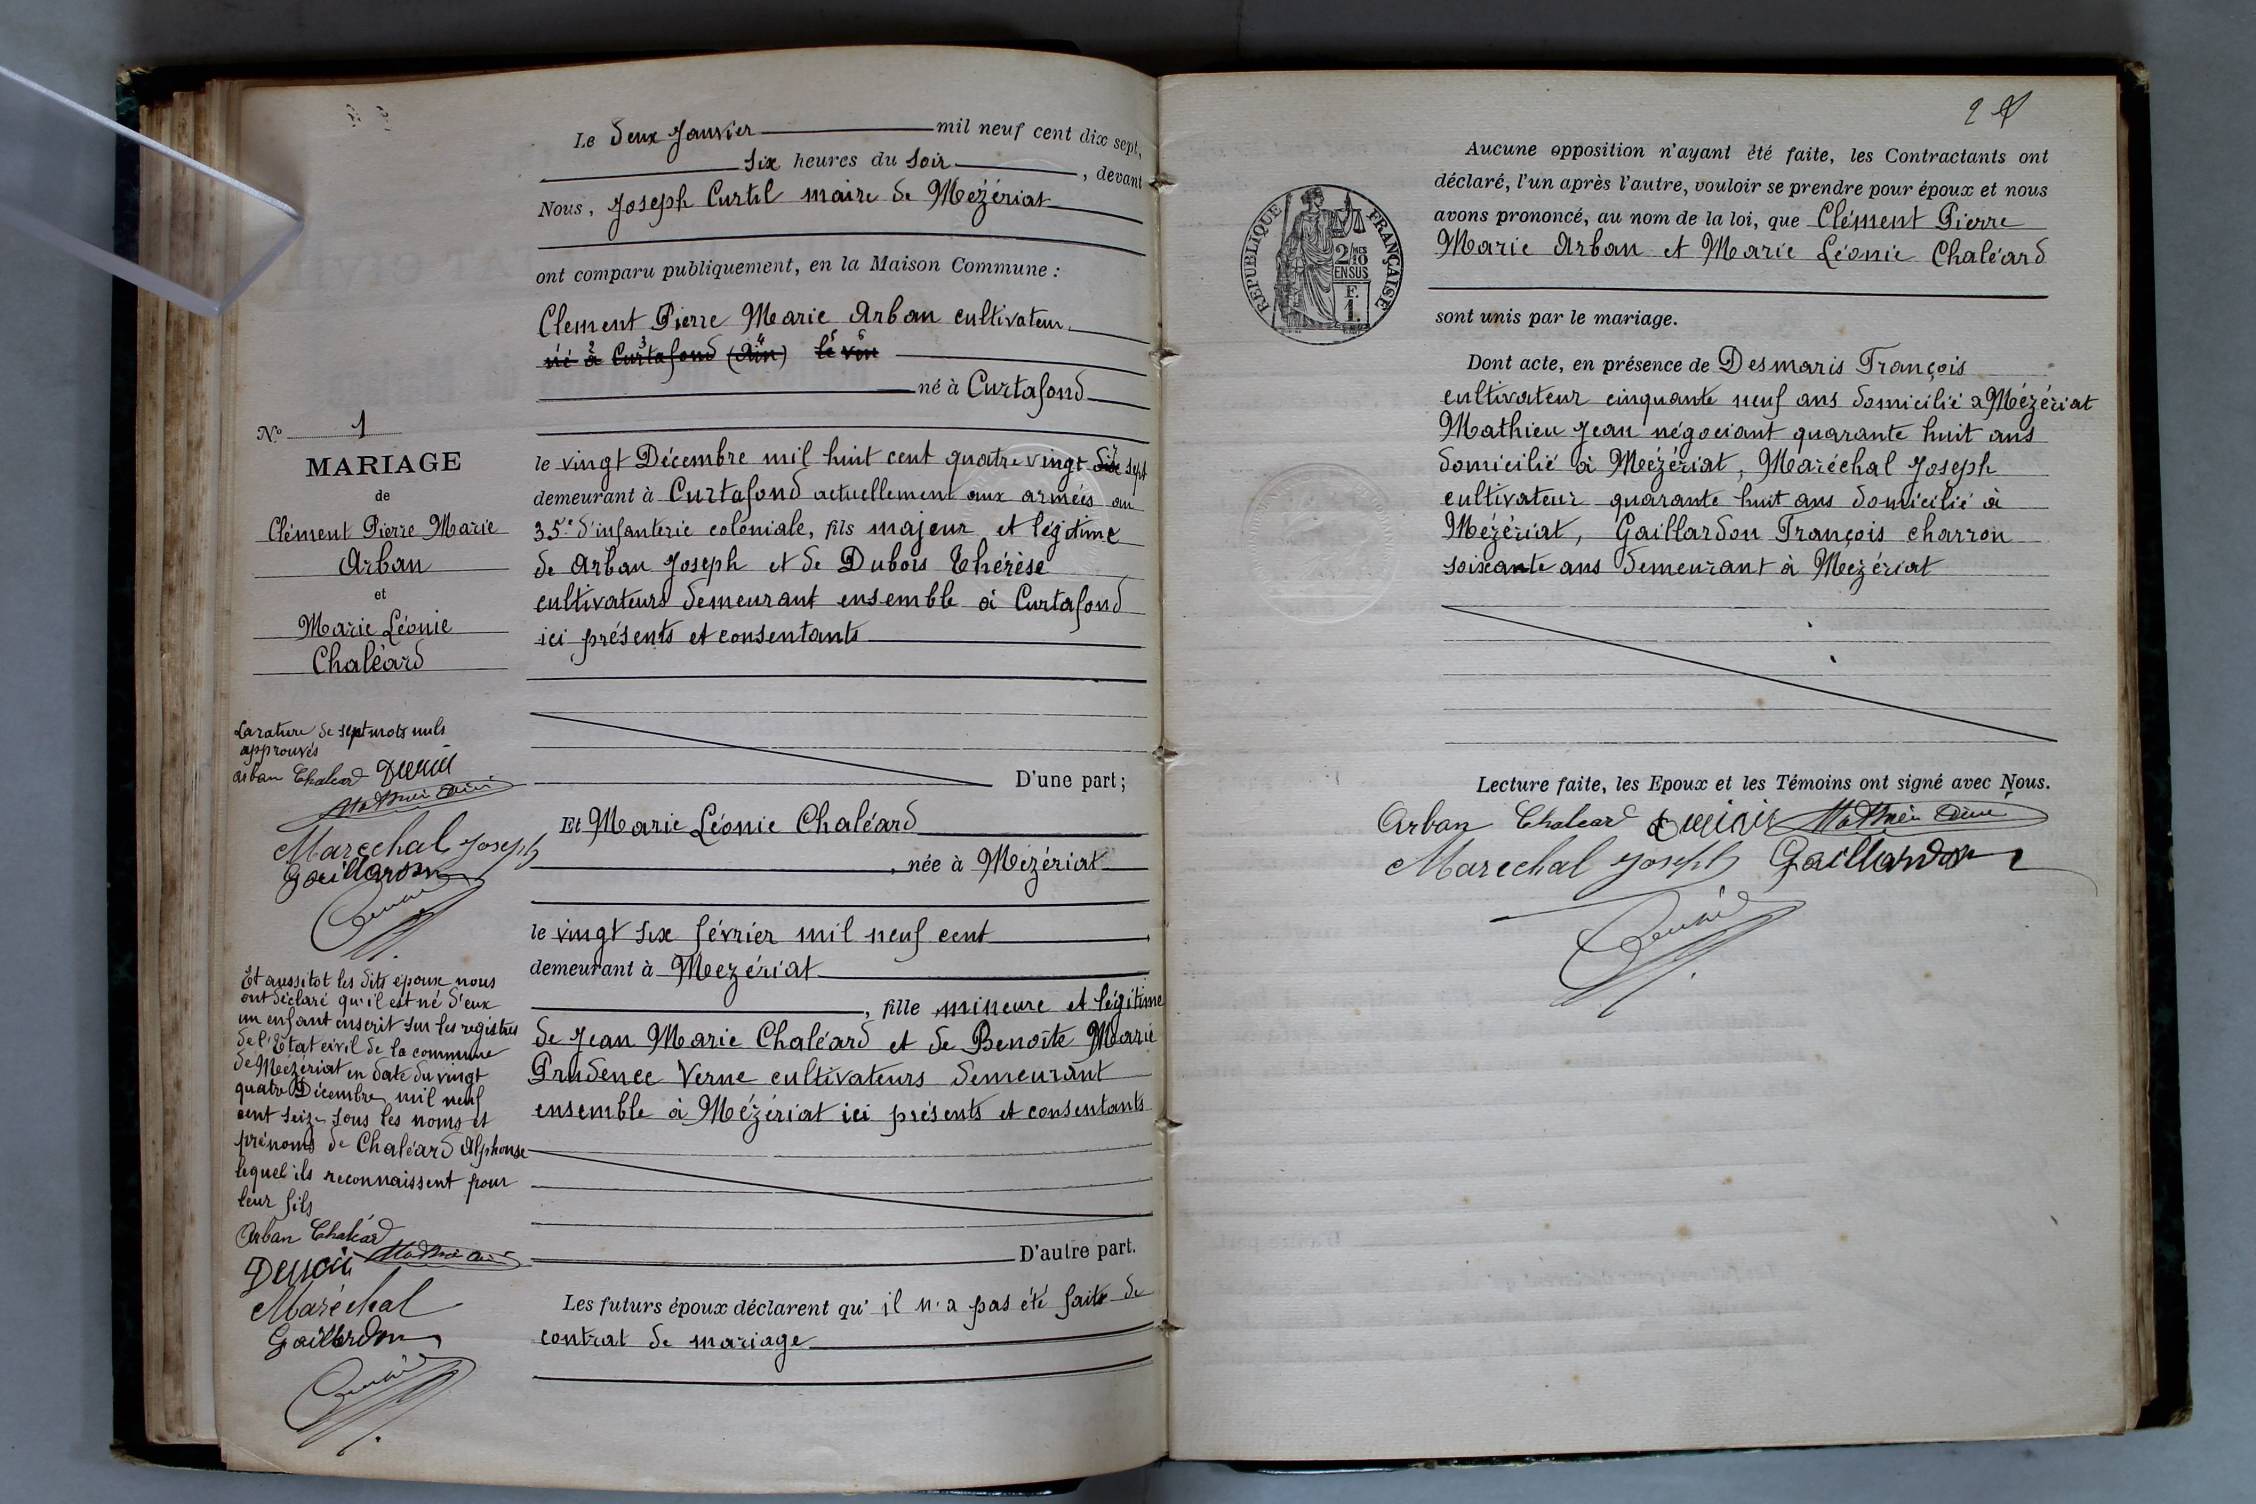 Le deux Janvier mil neuf cent dix sept,
six heures du soir, devant
Nous, Joseph Curtil maire de Mézériat
ont comparu publiquement, en la Maison Commune :
Clément Pierre Marie Arban cultivateur
né à Curtafond (Ain) le vin
né à Curtafond
le vingt Décembre mil huit cent quatre vingt dix sept
demeurant à Curtafond actuellement aux armées au
35e d'infanterie coloniale, fils majeur et légitime
de Arban Joseph et de Dubois Thérèse
cultivateurs demeurant ensemble à Curtafond
ici présents et consentants
D'une part;
Et Marie Léonie Chaléard
, née à Mézériat
le vingt six février mil neuf cent
demeurant à Mézériat
, fille mineure et légitime
de Jean Marie Chaléard et de Benoîte Marie
Prudence Verne cultivateurs demeurant
ensemble à Mézériat ici présents et consentants
D'autre part.
Les futurs époux déclarent qu'il n'a pas été faite de
contrat de mariage
No 1
MARIAGE
de
Clément Pierre Marie
Arban
et
Marie Léonie
Chaléard
La rature de sept mots nuls
approuvés
Arban Chaleard
Marechal Joseph
Gaillardon
Et aussitot les dits époux nous
ont déclaré qu'il est né d'eux
un enfant inscrit sur les registres
de l'Etat civil de la commune
de Mézériat en date du vingt
quatre Décembre mil neuf
cent seize sous les noms et
prénoms de Chaléard Alphonse
lequel ils reconnaissent pour
leur fils
Arban Chaléard
Maréchal
Gaillardon
2
RÉPUBLIQUE FRANÇAISE
2/10
EN SUS
F.
1.
Aucune opposition n'ayant été faite, les Contractants ont
déclaré, l'un après l'autre, vouloir se prendre pour époux et nous
avons prononcé, au nom de la loi, que Clément Pierre
Marie Arban et Marie Léonie Chaléard
sont unis par le mariage.
Dont acte, en présence de Desmaris François
cultivateur cinquante neuf ans domicilié a Mézériat
Mathieu Jean négociant quarante huit ans
domicilié à Mézériat, Maréchal Joseph
cultivateur quarante huit ans domicilié à
Mézériat, Gaillardon François charron
soixante ans demeurant à Mézériat
Lecture faite, les Epoux et les Témoins ont signé avec Nous.
Arban Chaleard
Marechal Joseph Gaillardon